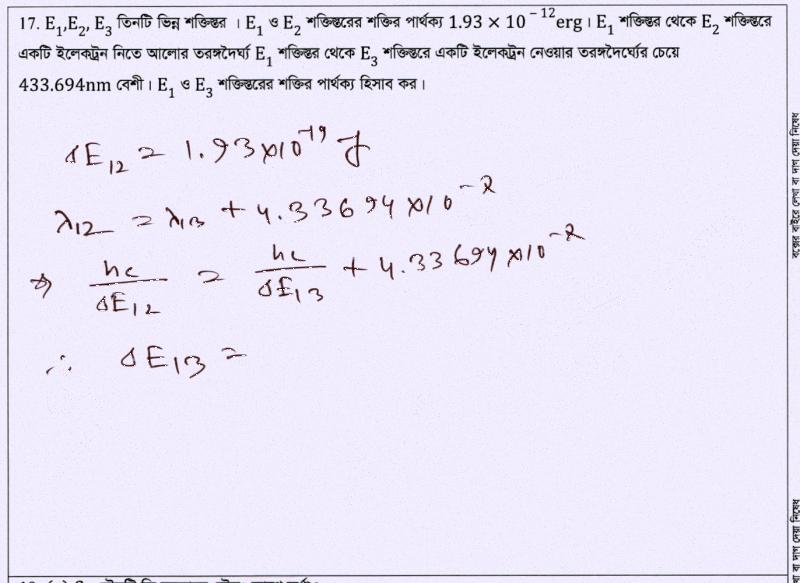 17. E₁,E₂, E₃ তিনটি ভিন্ন শক্তিস্তর । E₁ ও E₂ শক্তিস্তরের শক্তির পার্থক্য 1.93 × 10⁻¹²erg। E₁ শক্তিস্তর থেকে E₂ শক্তিস্তরে
একটি ইলেকট্রন নিতে আলোর তরঙ্গদৈর্ঘ্য E₁ শক্তিস্তর থেকে E₃ শক্তিস্তরে একটি ইলেকট্রন নেওয়ার তরঙ্গদৈর্ঘ্যের চেয়ে
433.694nm বেশী। E₁ ও E₃ শক্তিস্তরের শক্তির পার্থক্য হিসাব কর।
ΔE₁₂ = 1.93×10⁻¹⁹ J
λ₁₂ = λ₁₃ + 4.33694×10
⇒ hc/ΔE₁₂ = hc/ΔE₁₃ + 4.33694×10
∴ ΔE₁₃ =
বক্সের বাইরে লেখা বা দাগ দেয়া নিষেধ
বা দাগ দেয়া নিষেধ